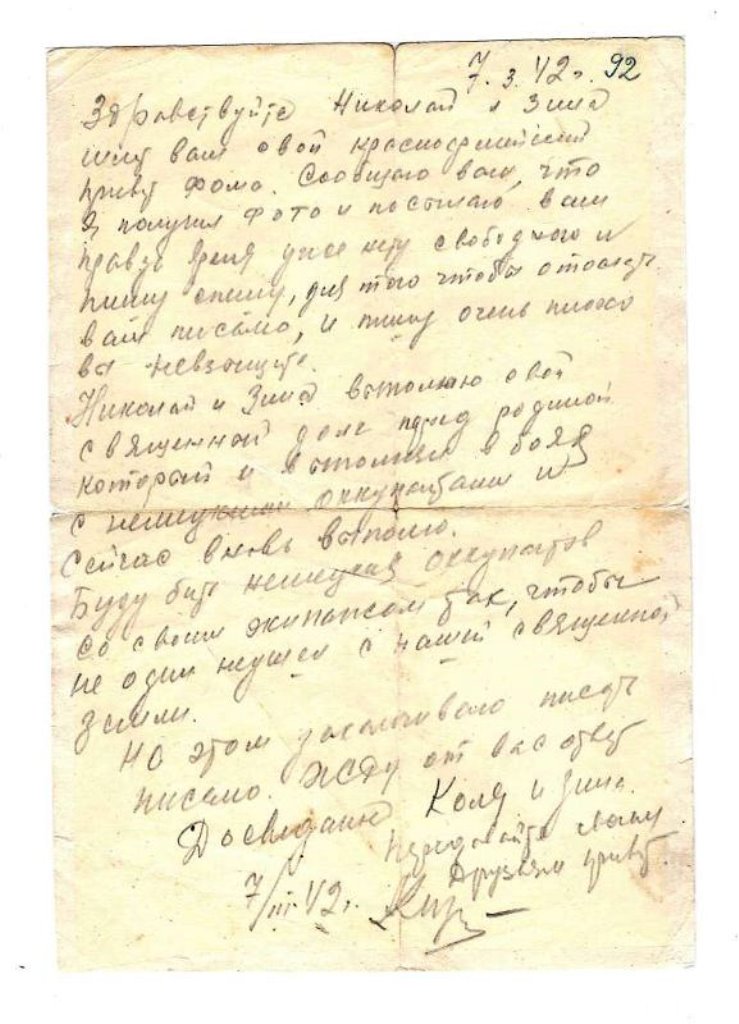 7.3.42г. 92
Здравствуйте Николай и Зина
шлю вам свой красноармейский
привет Фома. Сообщаю вам, что
я получил фото и посылаю вам
правда время уже нету свободного и
пишу спешу, для того чтобы отослать
вам письмо, и пишу очень плохо
вы невзыщите.
Николай и Зина выполняю свой
священной долг перед родиной
который и выполнял в боях
с немецкими оккупантами и
Сейчас вновь выполню.
Буду бить немецких оккупантов
со своим экипажем так, чтобы
не один неушел с нашей священной
земли.
На этом заканчиваю писать
письмо. Жду от вас ответ
Досвидание Коля и Зина.
Передавайте своим
друзьям привет.
7/III 42г.